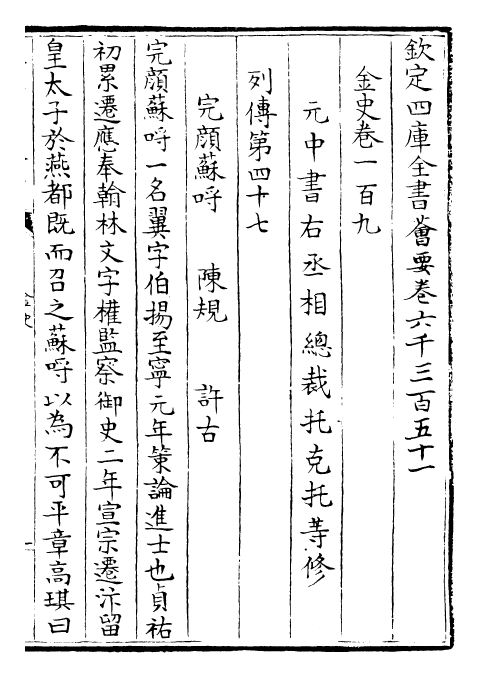 欽定四庫全書薈要卷六千三百五十一
金史卷一百九
元中書右丞相總裁托克托等修
列傳第四十七
完顔蘇哷 陳規 許古
完顔蘇哷一名翼字伯揚至寧元年策論進士也貞祐
初累遷應奉翰林文字權監察御史二年宣宗遷汴留
皇太子於燕都既而召之蘇哷以為不可平章高琪曰